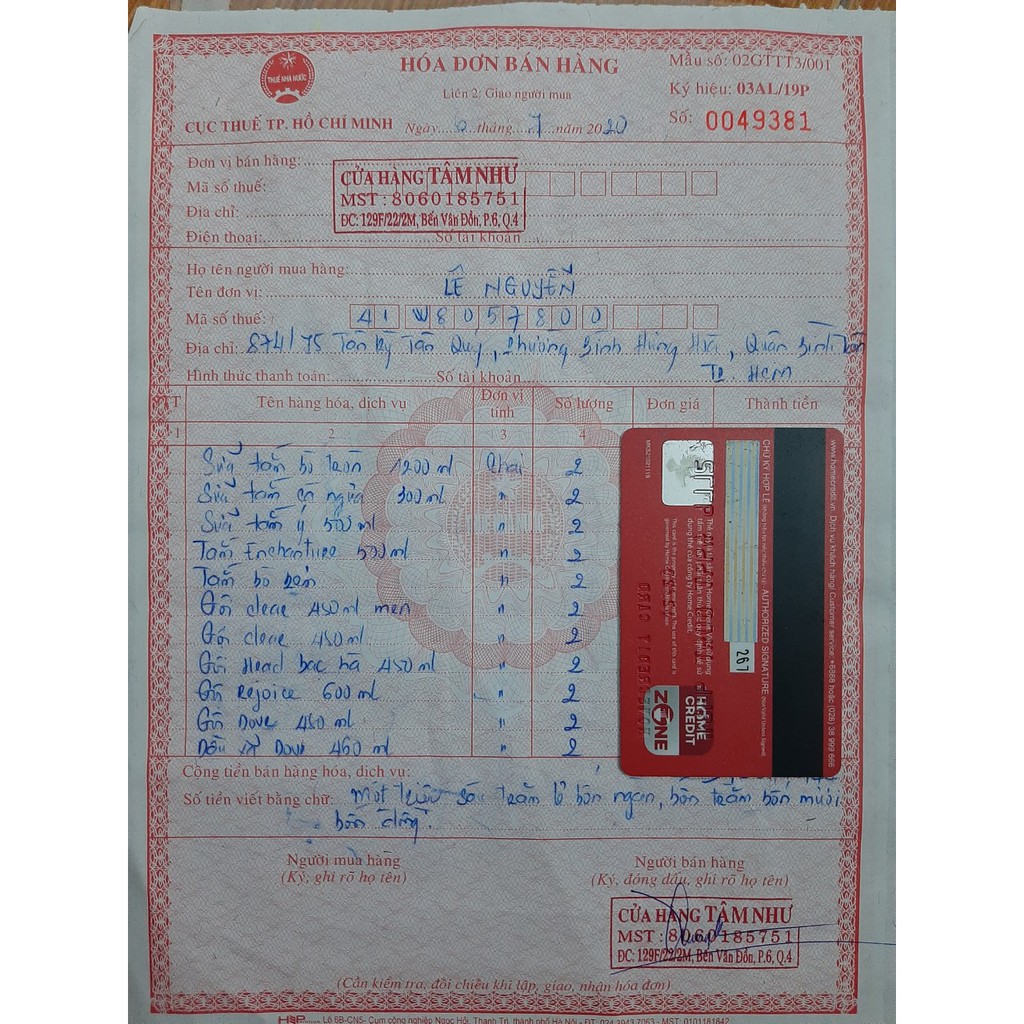 HÓA ĐƠN BÁN HÀNG
Mẫu số: 02GTTT3/001
Liên 2: Giao người mua
Ký hiệu: 03AL/19P
THUẾ NHÀ NƯỚC
CỤC THUẾ TP. HỒ CHÍ MINH
Ngày tháng 7 năm 2020
Số: 0049381
Đơn vị bán hàng:
CỬA HÀNG TÂM NHƯ
Mã số thuế:
MST : 8060185751
Địa chỉ:
ĐC: 129F/22/2M, Bến Vân Đồn, P.6, Q.4
Điện thoại: Số tài khoản
Họ tên người mua hàng:
Tên đơn vị: LÊ NGUYỄN
Mã số thuế: 41 W8057800
Địa chỉ: 874/75 Tân Kỳ Tân Quý, Phường Bình Hưng Hòa, Quận Bình Tân
Hình thức thanh toán: Số tài khoản Tp. HCM
TT Tên hàng hóa, dịch vụ Đơn vị tính Số lượng Đơn giá Thành tiền
1 2 3 4
Sữa tắm bò 1200 ml Chai 2
Sữa tắm cá ngựa 300 ml " 2
Sữa tắm ý 500 ml " 2
Tắm Enchanteur 500 ml " 2
Tắm bò " 2
Gội clear 450 ml men " 2
Gội clear 450 ml " 2
Gội Head bạc hà 450 ml " 2
Gội Rejoice 600 ml " 2
Gội Dove 480 ml " 2
Dầu xả Dove 460 ml " 2
Cộng tiền bán hàng hóa, dịch vụ:
Số tiền viết bằng chữ: Một triệu sáu trăm lẻ bốn ngàn, bốn trăm bốn mươi
bốn đồng.
www.homecredit.vn. Dịch vụ khách hàng/ Customer service: *6868 hoặc (028) 38 999 666
CHỮ KÝ HỢP LỆ AUTHORIZED SIGNATURE
267
HOME CREDIT
ZONE
Người mua hàng
(Ký, ghi rõ họ tên)
Người bán hàng
(Ký, đóng dấu, ghi rõ họ tên)
CỬA HÀNG TÂM NHƯ
MST : 8060185751
ĐC: 129F/22/2M, Bến Vân Đồn, P.6, Q.4
(Cần kiểm tra, đối chiếu khi lập, giao, nhận hóa đơn)
Lô 6B-CN5- Cụm công nghiệp Ngọc Hồi, Thanh Trì, thành phố Hà Nội - ĐT: 024.3943.7063 - MST: 0101181842